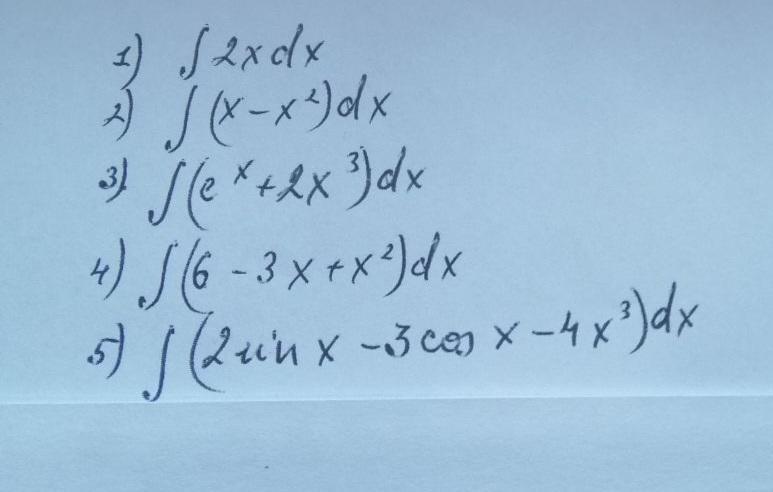 1) ∫2xdx
2) ∫(x-x²)dx
3) ∫(eˣ+2x³)dx
4) ∫(6-3x+x²)dx
5) ∫(2sin x-3cos x-4x³)dx